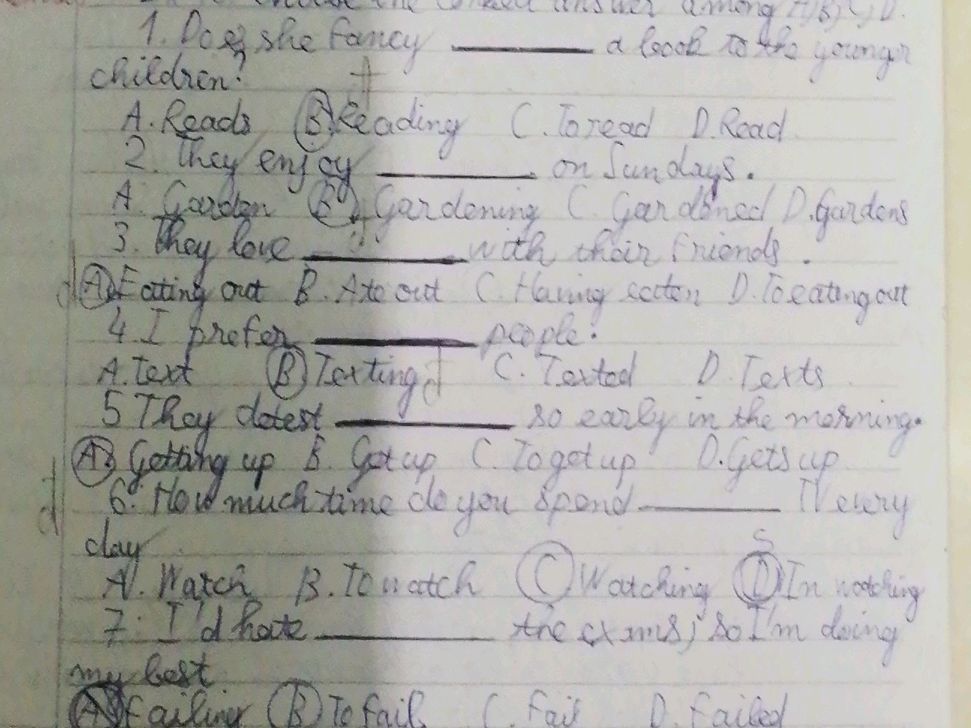 choose the correct answer among A, B, C, D.
1. Does she fancy ________ a book to the younger
children?
A. Reads B. Reading C. To read D. Read
2. They enjoy ________ on Sundays.
A. Garden B. Gardening C. Gardened D. Gardens
3. They love ________ with their friends.
A. Eating out B. Ate out C. Having eaten D. To eating out
4. I prefer ________ people.
A. Text B. Texting C. Texted D. Texts
5 They detest ________ so early in the morning.
A. Getting up B. Got up C. To get up D. Gets up
6. How much time do you spend ________ TV every
day
A. Watch B. To watch C Watching D In watching
7. I'd hate ________ the exams, so I'm doing
my best
A Failing B To fail C. Fail D. Failed